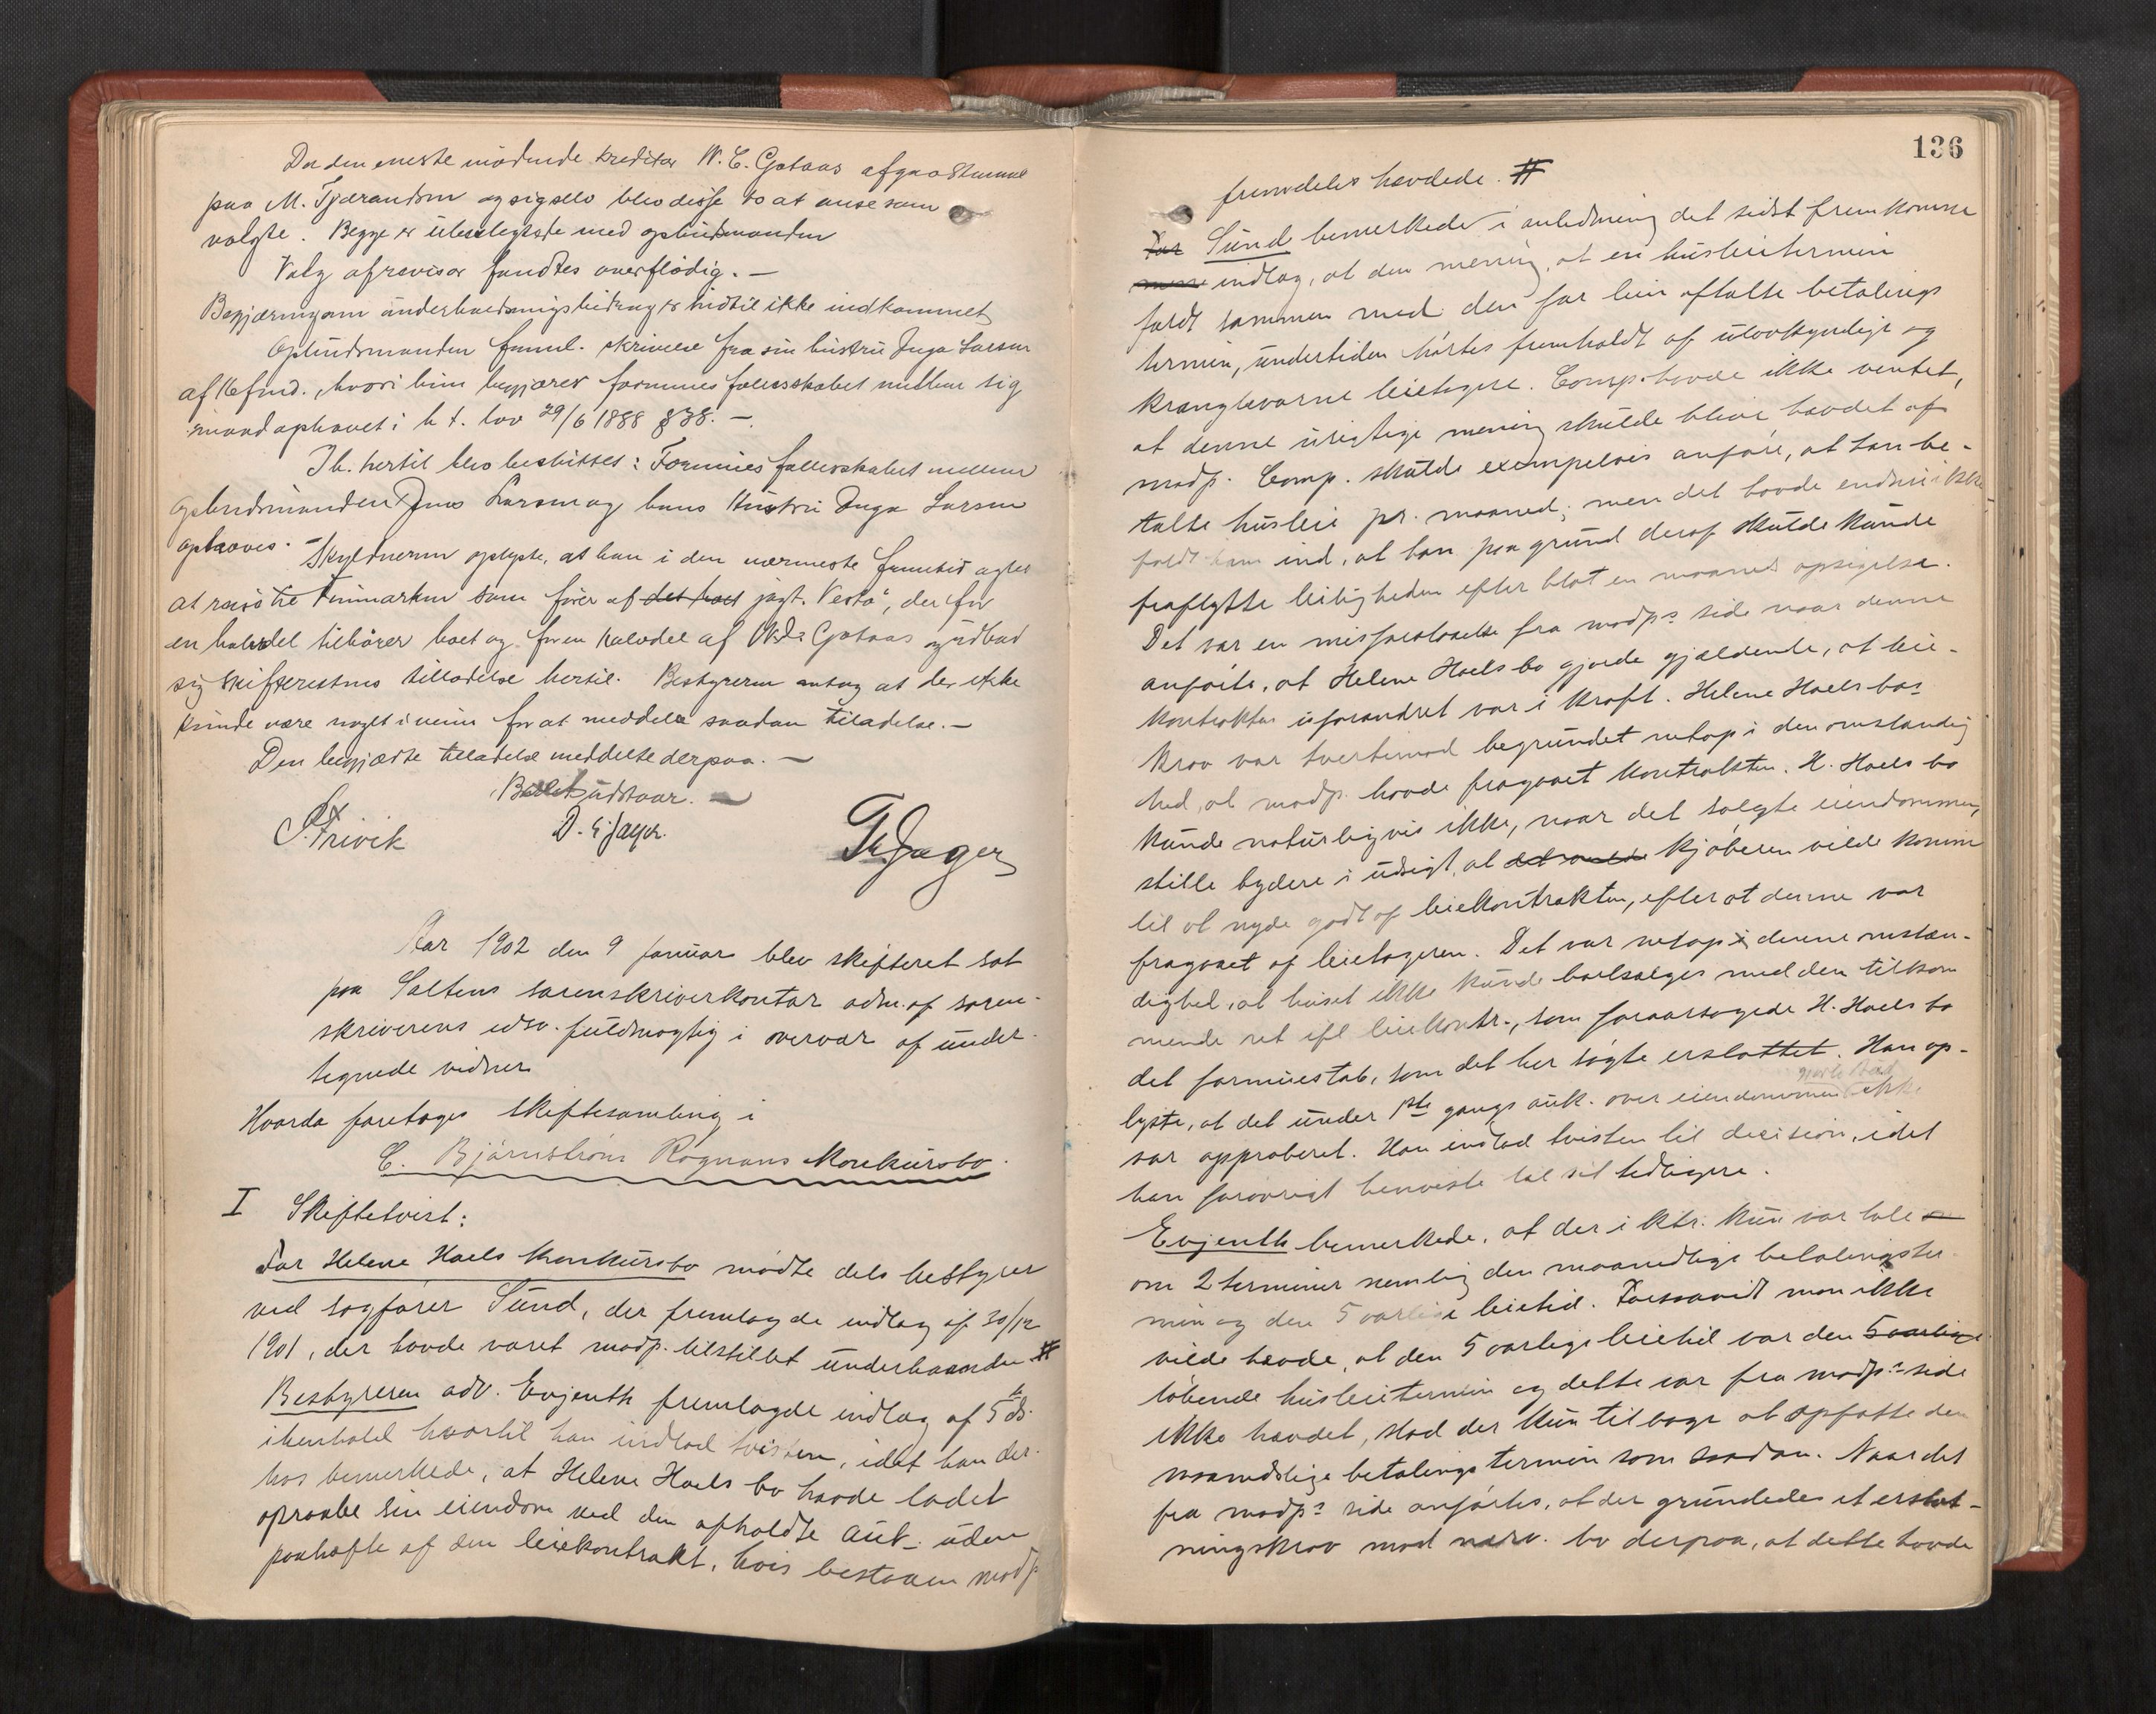 Da den eneste mødende kreditor W. C. Gotaas afgav Stemme
paa M. Tjærandsen og sig selv blev disse to at anse som
valgte. Begge er ubeslegtede med opbudsmanden
Valg af revisor fandtes overflødig. —
Begjæring om underholdningsbidrag er hidtil ikke indkommet
Opbudsmanden freml. skrivelse fra sin hustru Inga Larsen
af 16 fmd., hvori hun begjærer formuesfællesskabet mellem sig
mand ophævet i h. t. lov 29/6 1888 § 38. —
Ih. hertil blev besluttet: Formuesfællesskabet mellem
opbudsmanden Jens Larsen og hans Hustru Inga Larsen
ophæves. — Skyldneren oplyste, at han i den nærmeste fremtid agter
at reise til Finmarken som fører af det boet jagt. "Vesta", der for
en halvdel tilhører boet og for en halvdel af W. C. Gotaas og udbad
sig skifterettens tilladelse hertil. Bestyreren antog at der ikke
kunde være noget i veien for at meddele saadan tilladelse. —
Den begjærte tilladelse meddeltes derpaa. —
Boet udstaar. —
S. Trivik
Fr Jager
Aar 1902 den 9 januar blev skifteret sat
paa Saltens sorenskriverkontor adm. af soren-
skriverens edsv. fuldmægtig i overvær af under-
tegnede vidner
Hvorda foretoges skiftesamling i
C. Bjørnstrøms Rognans Konkursbo.
I Skiftetvist:
For Helene Hoels konkursbo mødte dets bestyrer
ved sagfører Sund, der fremlagde indlæg af 30/12
1901, der havde været modp. tilstillet underhaanden #
Bestyreren adv. Evjenth fremlagde indlæg af 5 ds.
ihenhold hvortil han indlod tvisten, idet han der-
hos bemerkede, at Helene Hoels bo havde ladet
opraabe sin eiendom ved den afholdte auk. uden
paahefte af den leiekontrakt, hvis bestaaen modp.
136
fremdeles hævdede. #
For Sund bemerkede i anledning det sidst fremkomne
indlæg, at den mening, at en husleietermin
faldt sammen med den for leien aftalte betalings
termin, undertiden hørtes fremholdt af ulovkyndige og
kranglevorne leietagere. Comp. havde ikke ventet,
at denne urigtige mening skulde blive hævdet af
modp. Comp. skulde exempelvis anføre, at han be-
talte husleie pr. maaned; men det havde endnu ikke
faldt ham ind, at han paa grund deraf skulde kunde
fraflytte leiligheden efter blot en maaneds opsigelse.
Det var en misforstaaelse fra modp.s side naar denne
anførte, at Helene Hoels bo gjorde gjældende, at leie-
kontrakten uforandret var i kraft. Helene Hoels bos
krav var tvertimod begrundet netop i den omstændig
hed, at modp. havde fragaaet kontrakten. H. Hoels bo
kunde naturligvis ikke, naar det solgte eiendommen,
stille bydere i udsigt, at kjøberen vilde komme
til at nyde godt af leiekontrakten, efter at denne var
fragaaet af leietageren. Det var netop i denne omstæn-
dighed, at huset ikke kunde bortsælges med den tilkom
mende ret efl leiekontr., som foraarsagede H. Hoels bo
det formuestab, som det her søgte erstattet. Han op-
lyste, at det under 1ste gangs auk. over eiendommen ikke
var approberet. Han indlod tvisten til decision, idet
han forøvrigt henviste til sit tidligere.
Evjenth bemerkede, at der i ktr. kun var tale
om 2 terminer nemlig den maanedlige betalingster-
min og den 5 aarlige leietid. Forsaavidt man ikke
vilde hævde, at den 5 aarlige leietid var den 5 aarlige
løbende husleietermin og dette var fra modp.s side
ikke hævdet, stod der kun tilbage at opfatte den
maanedslige betalingstermin som saadan. Naar det
fra modp.s side anførtes, at der grundedes et erstat-
ningskrav mod nærv. bo derpaa, at dette havde